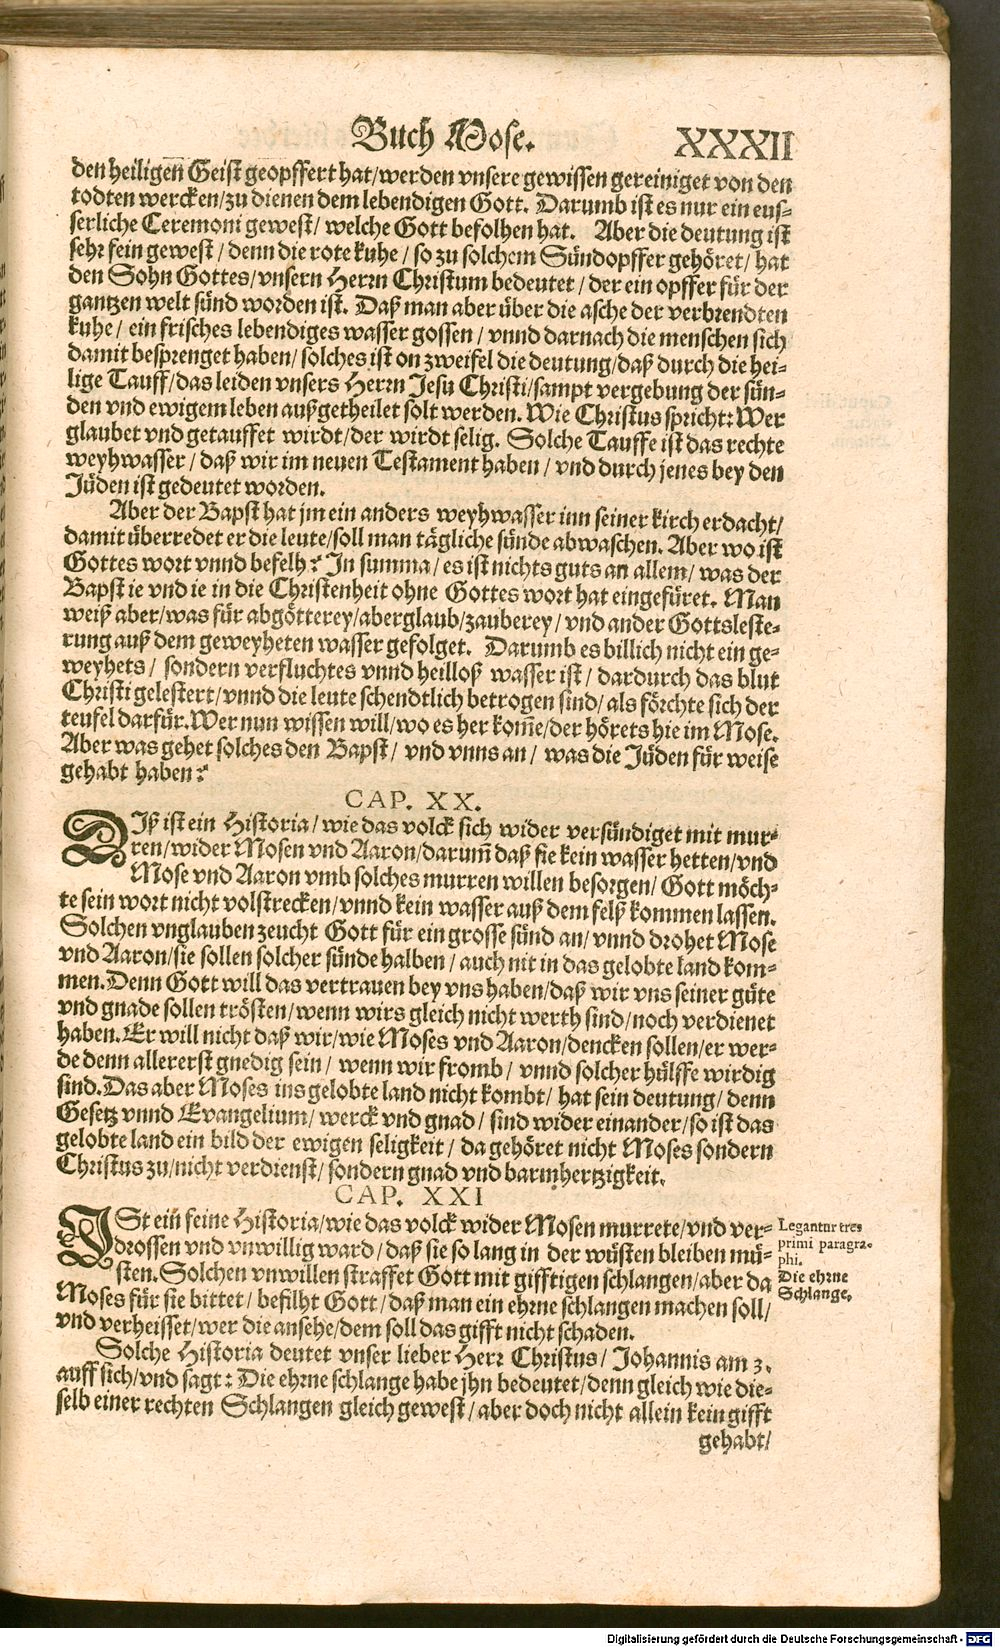 Buch Mose. XXXII
den heiligen̄ Geist geopffert hat/werden vnsere gewissen gereiniget von den
todten wercken/zu dienen dem lebendigen Gott. Darumb ist es nur ein eus-
serliche Ceremoni gewest/ welche Gott befolhen hat. Aber die deutung ist
sehr fein gewest/ denn die rote kuhe/ so zu solchem Sündopffer gehöret/ hat
den Sohn Gottes/vnsern Herrn Christum bedeutet/ der ein opffer für der
gantzen welt sünd worden ist. Daß man aber über die asche der verbrendten
kuhe/ ein frisches lebendiges wasser gossen/ vnnd darnach die menschen sich
damit besprenget haben/ solches ist on zweifel die deutung/daß durch die hei-
lige Tauff/das leiden vnsers Herrn Jesu Christi/sampt vergebung der sün-
den vnd ewigem leben außgetheilet solt werden. Wie Christus spricht: Wer
glaubet vnd getauffet wirdt/der wirdt selig. Solche Tauffe ist das rechte
weyhwasser/ daß wir im neuen Testament haben/ vnd durch jenes bey den
Jüden ist gedeutet worden.
Aber der Bapst hat jm ein anders weyhwasser inn seiner kirch erdacht/
damit überredet er die leute/soll man tägliche sünde abwaschen. Aber wo ist
Gottes wort vnnd befelh? In summa/ es ist nichts guts an allem/ was der
Bapst ie vnd ie in die Christenheit ohne Gottes wort hat eingefüret. Man
weiß aber/was für abgötterey/aberglaub/zauberey/ vnd ander Gottsleste-
rung auß dem geweyheten wasser gefolget. Darumb es billich nicht ein ge-
weyhets/ sondern verfluchtes vnnd heilloß wasser ist/ dardurch das blut
Christi gelestert/vnnd die leute schendtlich betrogen sind/ als förchte sich der
teufel darfür. Wer nun wissen will/wo es her kom̄e/der hörets hie im Mose.
Aber was gehet solches den Bapst/ vnd vnns an/ was die Jüden für weise
gehabt haben?
CAP. XX.
DIß ist ein Historia/ wie das volck sich wider versündiget mit mur-
ren/wider Mosen vnd Aaron/darum̄ daß sie kein wasser hetten/vnd
Mose vnd Aaron vmb solches murren willen besorgen/ Gott möch-
te sein wort nicht volstrecken/vnnd kein wasser auß dem felß kommen lassen.
Solchen vnglauben zeucht Gott für ein grosse sünd an/ vnnd drohet Mose
vnd Aaron/sie sollen solcher sünde halben/ auch nit in das gelobte land kom-
men. Denn Gott will das vertrauen bey vns haben/daß wir vns seiner güte
vnd gnade sollen trösten/wenn wirs gleich nicht werth sind/noch verdienet
haben. Er will nicht daß wir/wie Moses vnd Aaron/dencken sollen/er wer-
de denn allererst gnedig sein/ wenn wir fromb/ vnnd solcher hülffe wirdig
sind. Das aber Moses ins gelobte land nicht kombt/ hat sein deutung/ denn
Gesetz vnnd Evangelium/ werck vnd gnad/ sind wider einander/so ist das
gelobte land ein bild der ewigen seligkeit/ da gehöret nicht Moses sondern
Christus zu/nicht verdienst/sondern gnad vnd barmhertzigkeit.
CAP. XXI
ISt ein feine Historia/wie das volck wider Mosen murrete/vnd ver-
drossen vnd vnwillig ward/ daß sie so lang in der wüsten bleiben mü-
sten. Solchen vnwillen straffet Gott mit gifftigen schlangen/aber da
Moses für sie bittet/ befilht Gott/daß man ein ehrne schlangen machen soll/
vnd verheisset/wer die ansehe/dem soll das gifft nicht schaden.
Legantur tres
primi paragra-
phi.
Die ehrne
Schlange.
Solche Historia deutet vnser lieber Herr Christus/ Johannis am 3.
auff sich/vnd sagt: Die ehrne schlange habe jhn bedeutet/denn gleich wie die-
selb einer rechten Schlangen gleich gewest/aber doch nicht allein kein gifft
gehabt/
Digitalisierung gefördert durch die Deutsche Forschungsgemeinschaft - DFG